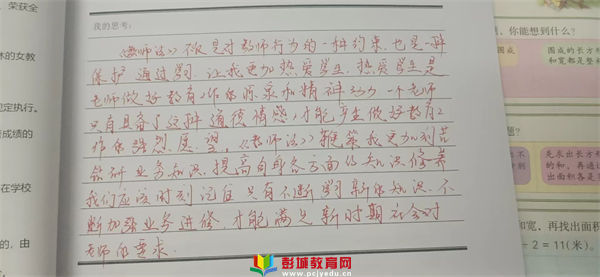 ，荣获全
休的女教
规定执行。
著成绩的
在学校
的，由
我的思考：
《教师法》不仅是对教师行为的一种约束，也是一种
保护。通过学习，让我更加热爱学生，热爱学生是
老师做好教育工作的源泉和精神动力。一个老师
只有具备了这种道德情感，才能产生做好教育工
作的强烈愿望，《教师法》鞭策我更加刻苦
钻研业务知识，提高自身各方面的知识修养
我们应该时刻记住只有不断学习新的知识，不
断加强业务进修，才能满足新时期社会对
老师的要求.
，你能想到什么？
围成
围成的长方形
和宽都是整
题？
是求出长方形
的和，再通
出面积各是
和宽，再找出面积
－2＝11(米)。
彭城教育网
www.ocjyedu.cn